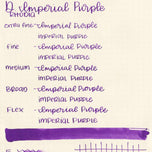 D. Imperial Purple
extra fine - Imperial Purple
IMPERIAL PURPLE
Fine - Imperial Purple
IMPERIAL PURPLE
Medium - Imperial Purple
IMPERIAL PURPLE
Broad - Imperial Purple
IMPERIAL PURPLE
Flex - Imperial Purple
IMPERIAL PURPLE